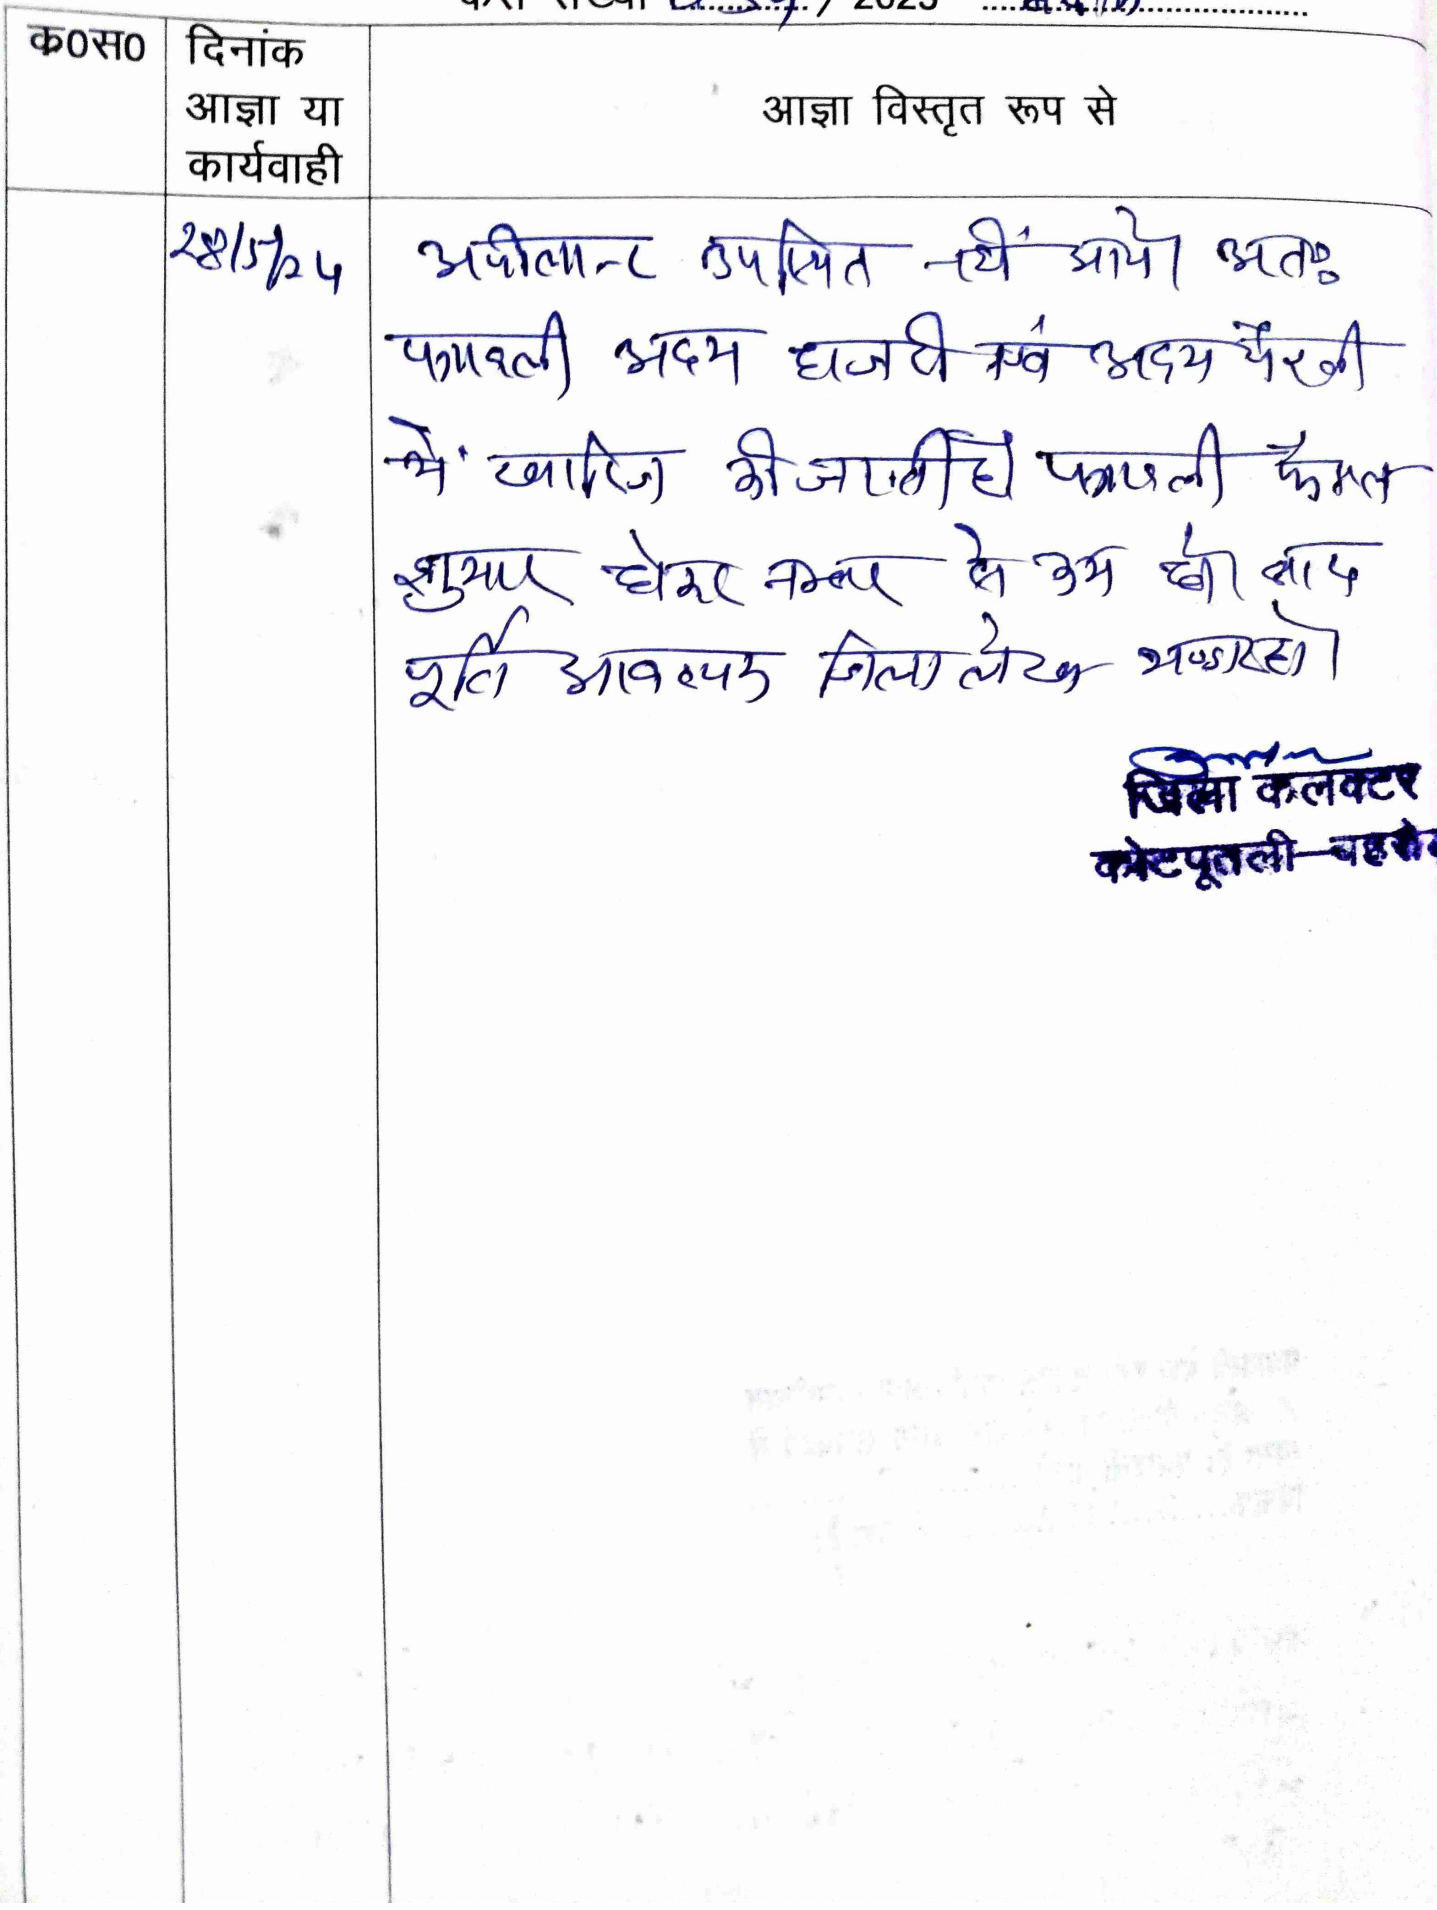 / 2023
क0स0
दिनांक
आज्ञा या
कार्यवाही
आज्ञा विस्तृत रूप से
28/5/24
अपीलान्ट उपस्थित नहीं आये। अतः
पत्रावली अदम हाजरी एवं अदम पैरवी
में खारिज की जाती है। पत्रावली फैसल
शुमार होकर नम्बर से कम हो। बाद
पूर्ति आवश्यक जिला लेख भण्डार हो।
जिला कलक्टर
कोटपूतली-बहरोड़